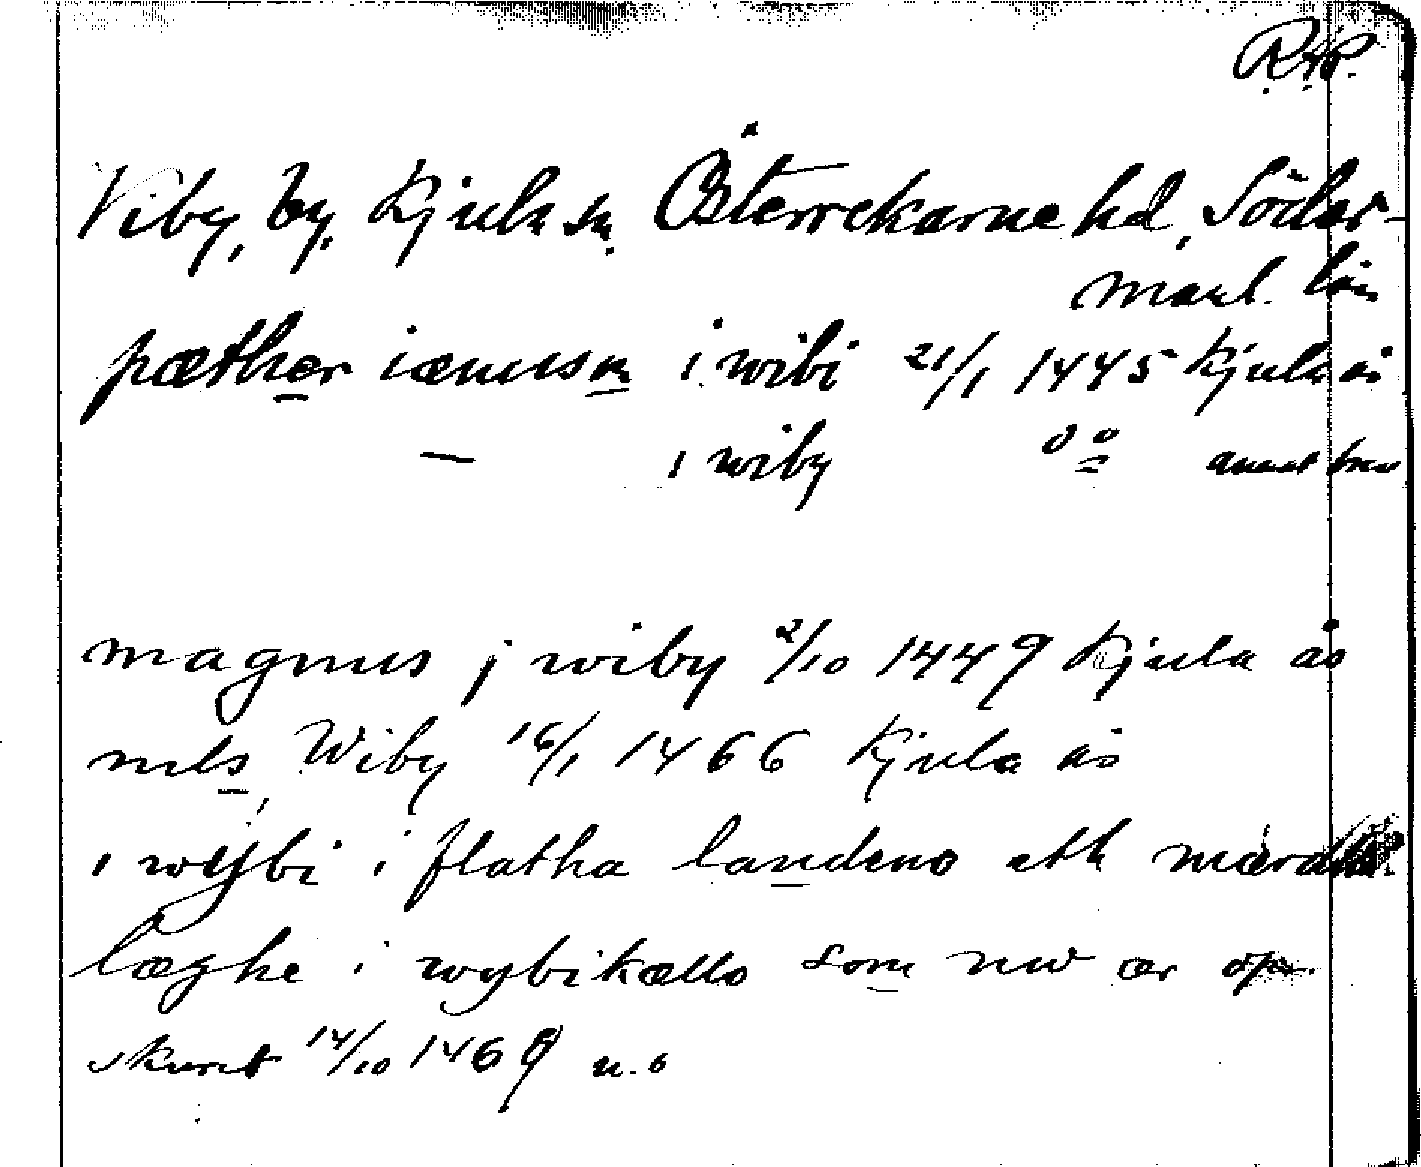 RAP.
Viby, by. Kjula sn. Österrekarne hd, Söder-
manl. län
pæther iænussn i wibi 21/1 1445 Kjula ås
— i wiby 00 annat brev
magnus j wiby 2/10 1449 Kjula ås
nils Wiby 16/1 1466 Kjula ås
i wybi i flatha landeno eth mærdha
læghe i wybikællo som nw ær op
skuret 14/10 1469 u.o